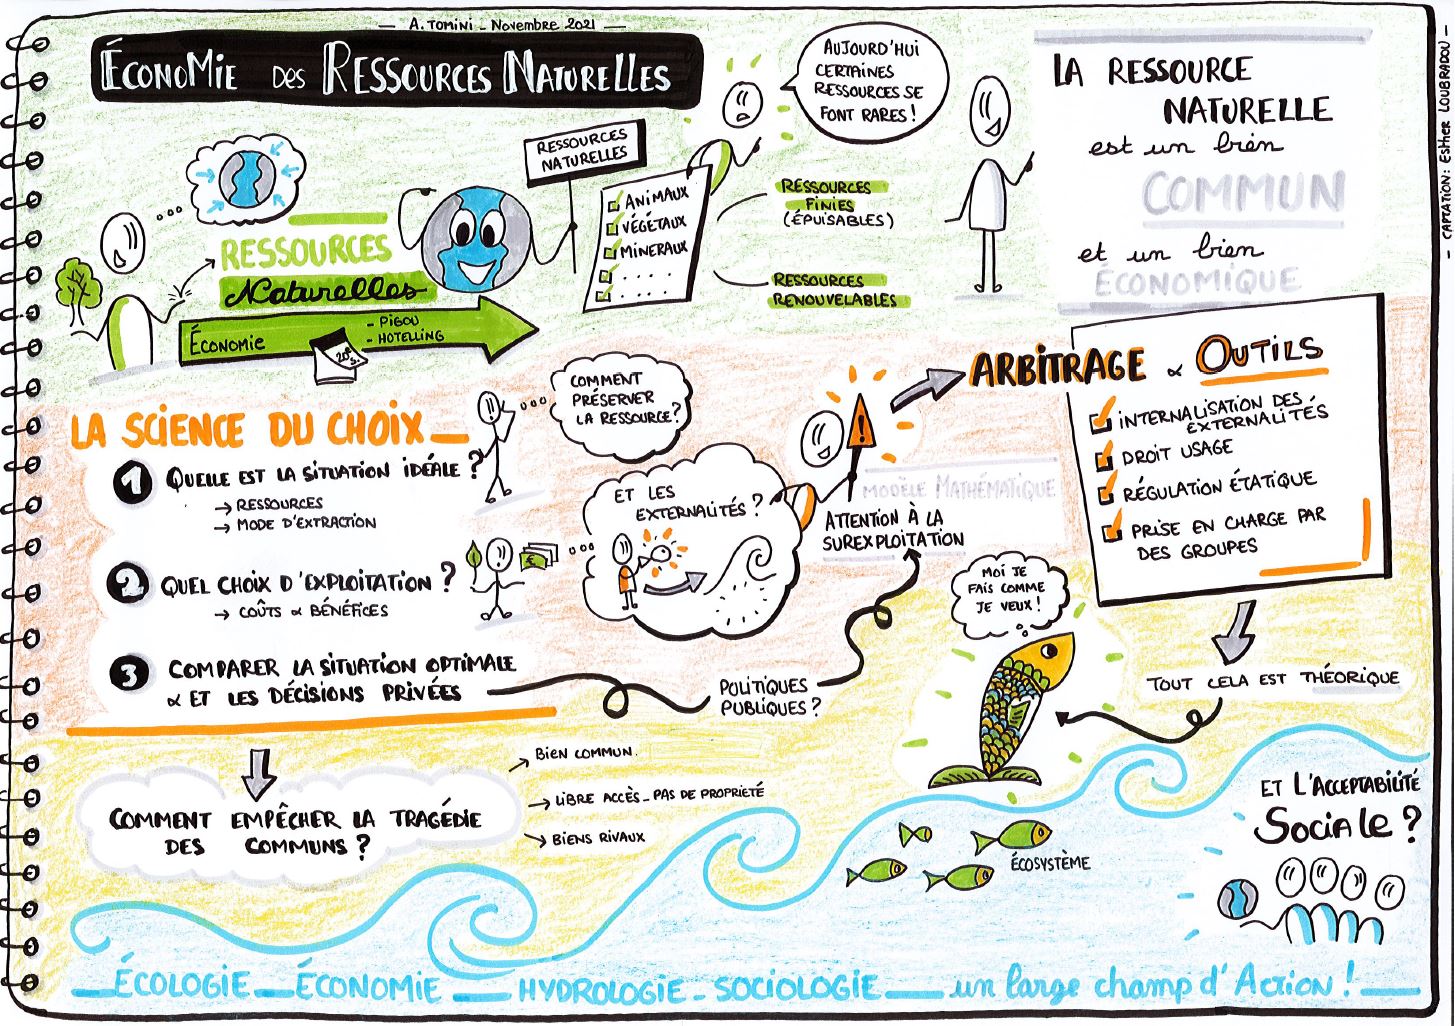 — A. TOMINI - Novembre 2021 —
ÉCONOMIE DES RESSOURCES NATURELLES
AUJOURD'HUI
CERTAINES
RESSOURCES SE
FONT RARES !
LA RESSOURCE
NATURELLE
est un bien
COMMUN
et un bien
ÉCONOMIQUE
— CAPTATION : ESTHER LOUBRADOU —
RESSOURCES
NATURELLES
ANIMAUX
VÉGÉTAUX
MINERAUX
. . . .
. . . .
RESSOURCES
FINIES
(ÉPUISABLES)
RESSOURCES
RENOUVELABLES
RESSOURCES
Naturelles
ÉCONOMIE
- PIGOU
- HOTELLING
20e s.
LA SCIENCE DU CHOIX
1 QUELLE EST LA SITUATION IDÉALE ?
→ RESSOURCES
→ MODE D'EXTRACTION
2 QUEL CHOIX D'EXPLOITATION ?
→ COÛTS & BÉNÉFICES
3 COMPARER LA SITUATION OPTIMALE
& ET LES DÉCISIONS PRIVÉES
COMMENT
PRÉSERVER
LA RESSOURCE ?
€
ET LES
EXTERNALITÉS ?
!
MODÈLE MATHÉMATIQUE
ATTENTION À LA
SUREXPLOITATION
POLITIQUES
PUBLIQUES ?
ARBITRAGE & OUTILS
INTERNALISATION DES
EXTERNALITÉS
DROIT USAGE
RÉGULATION ÉTATIQUE
PRISE EN CHARGE PAR
DES GROUPES
TOUT CELA EST THÉORIQUE
MOI JE
FAIS COMME
JE VEUX !
COMMENT EMPÊCHER LA TRAGÉDIE
DES COMMUNS ?
BIEN COMMUN.
→ LIBRE ACCÈS - PAS DE PROPRIETÉ
→ BIENS RIVAUX
ÉCOSYSTÈME
ET L'ACCEPTABILITÉ
SOCIALE ?
ÉCOLOGIE — ÉCONOMIE — HYDROLOGIE - SOCIOLOGIE — un large champ d'Action !